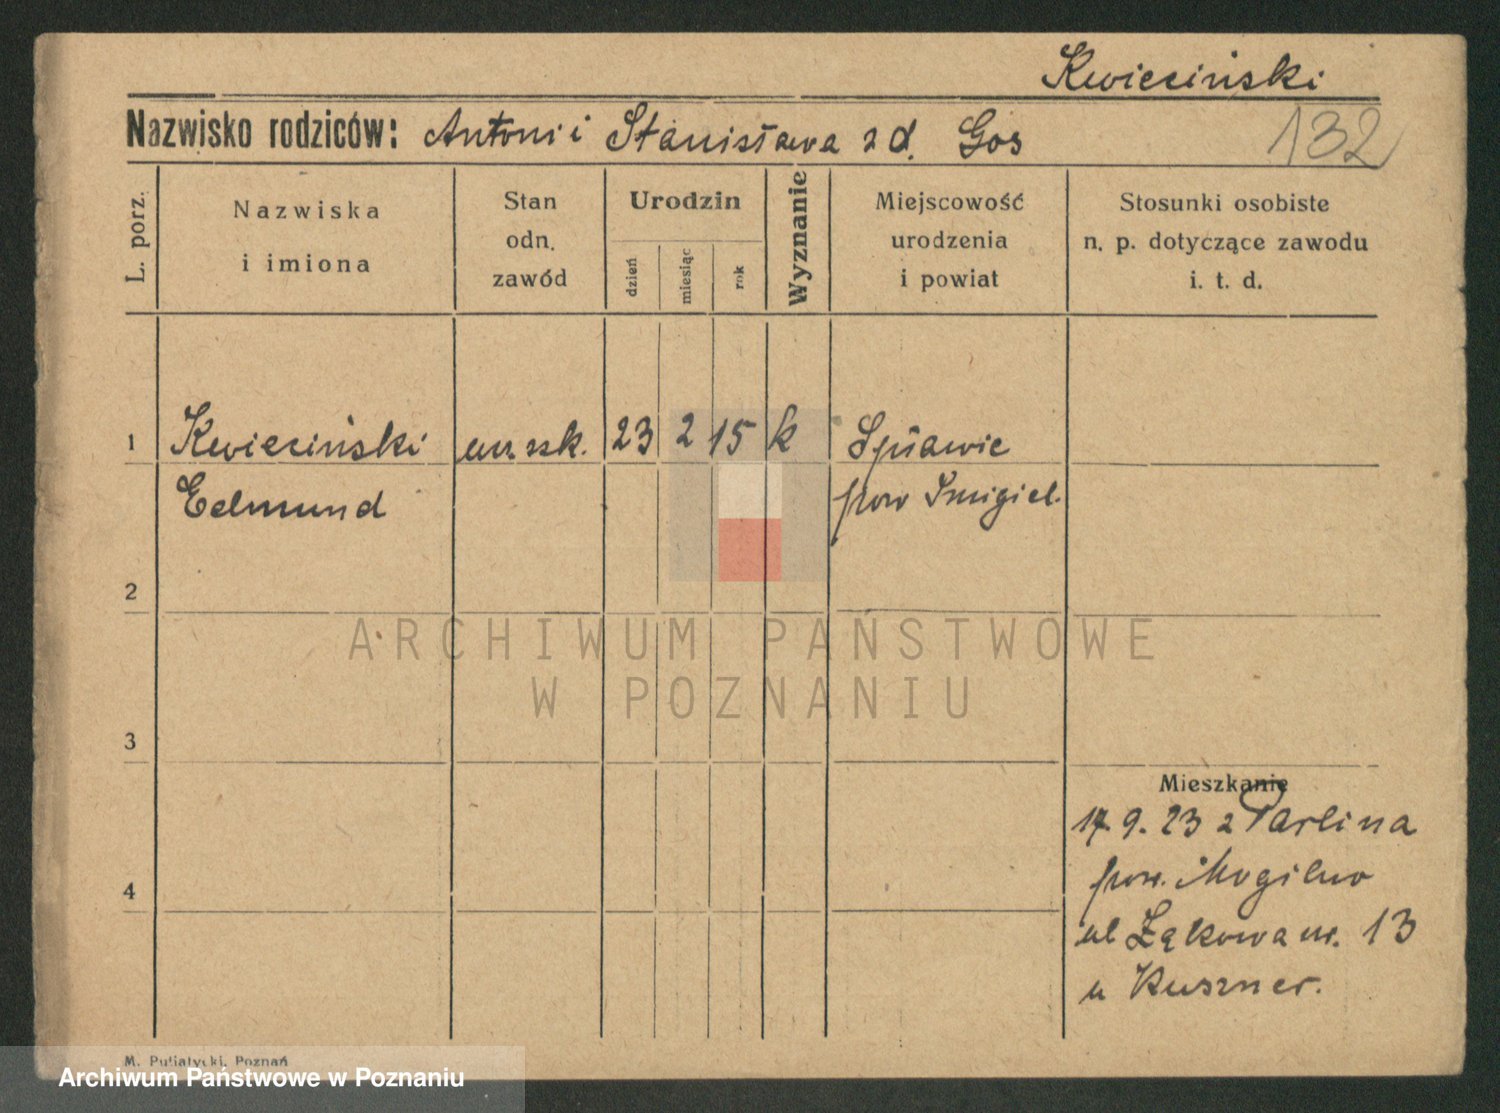 Kwieciński
Nazwisko rodziców: Antoni i Stanisława z d. Gos
132
L. porz.
Nazwiska
i imiona
Stan
odn.
zawód
Urodzin
dzień
miesiąc
rok
Wyznanie
Miejscowość
urodzenia
i powiat
Stosunki osobiste
n. p. dotyczące zawodu
i. t. d.
1 Kwieciński ucz szk. 23 2 15 k Spławie
Edmund pow Śmigiel.
2
3
4
ARCHIWUM PAŃSTWOWE
W POZNANIU
Mieszkanie
17.9.23 z Parlina
pow. Mogilno
ul Łąkowa nr. 13
u Kuszner.
M. Putiatycki, Poznań
Archiwum Państwowe w Poznaniu